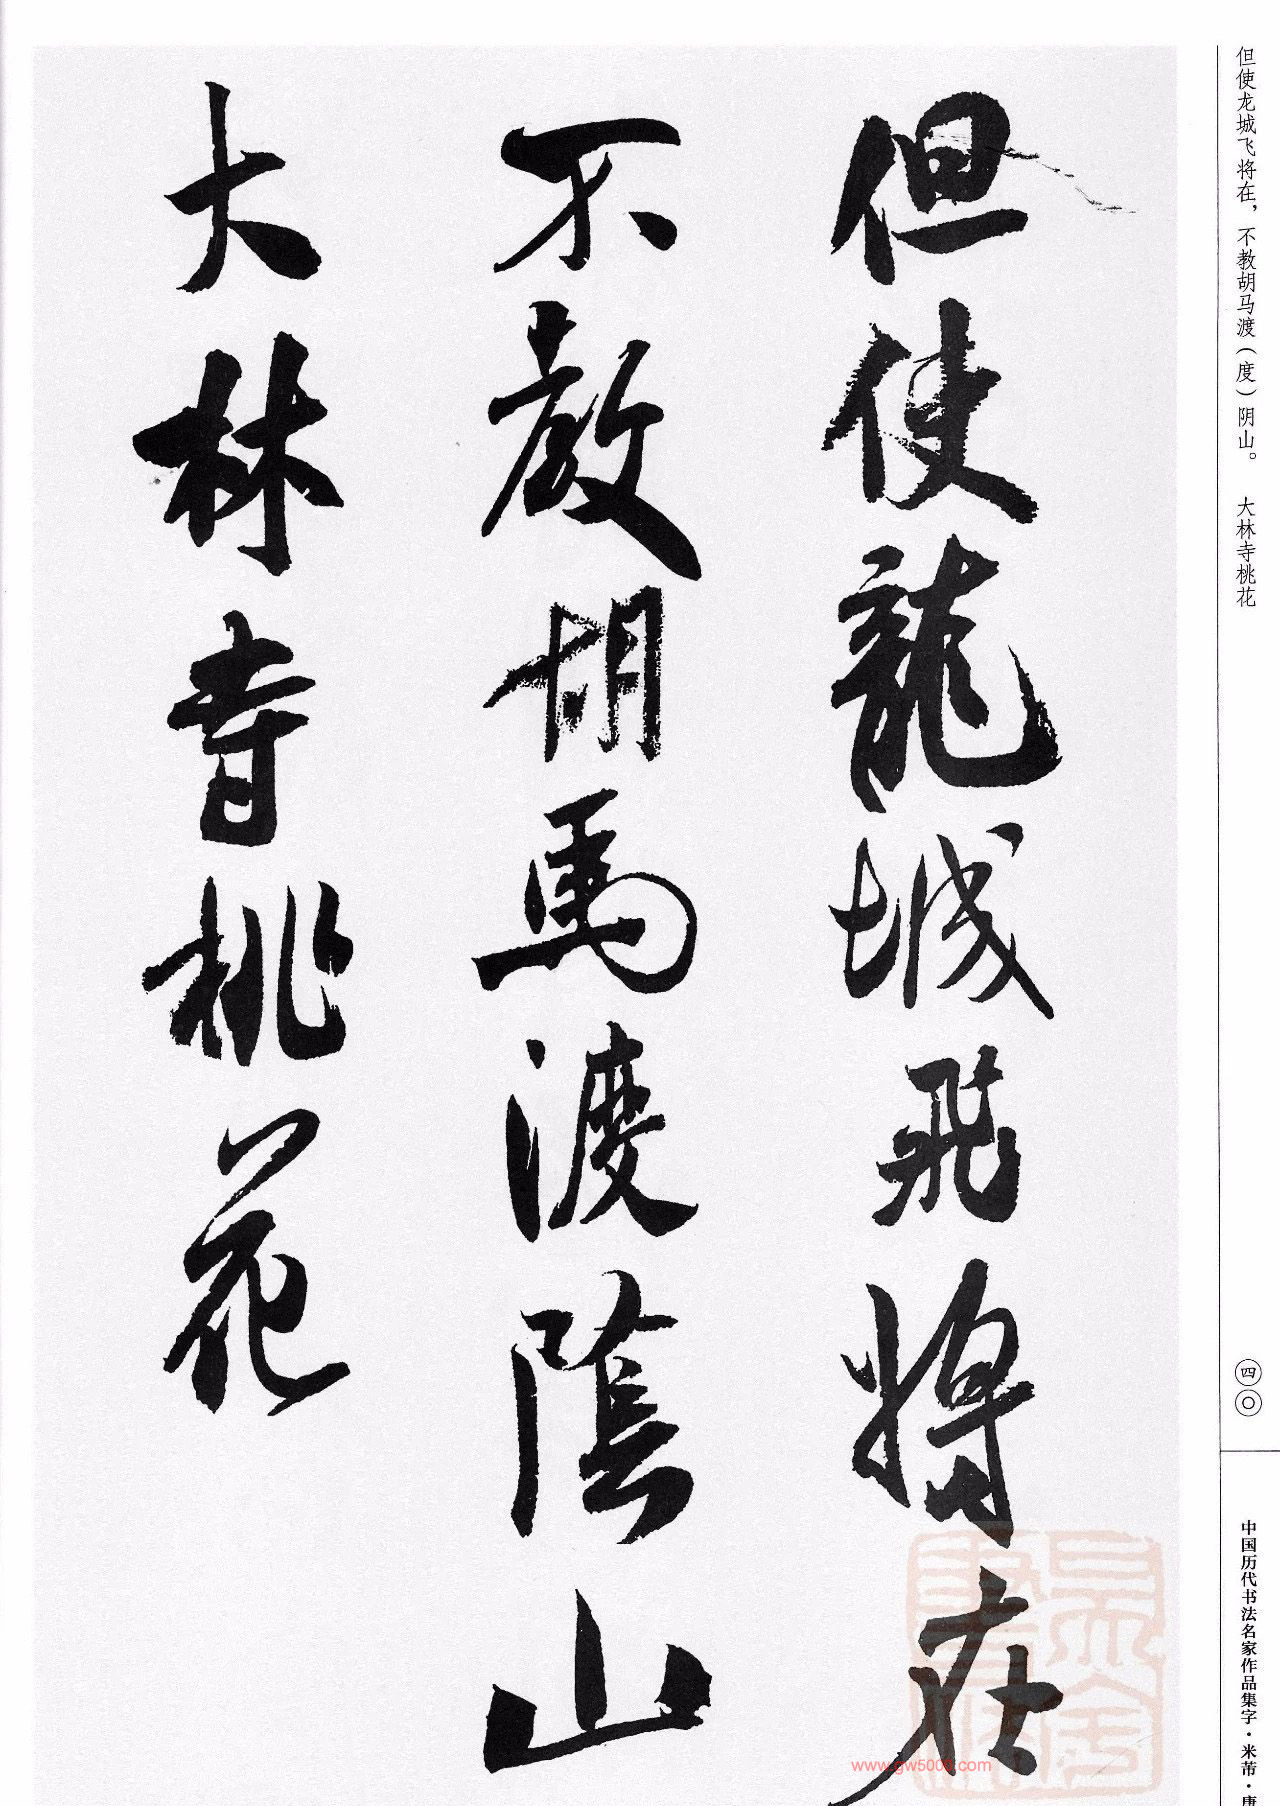 但使龙城飞将在，不教胡马渡（度）阴山。 大林寺桃花
四〇
中国历代书法名家作品集字·米芾·唐
但使龍城飛將在
不教胡馬渡陰山
大林寺桃花
www.gw5000.com